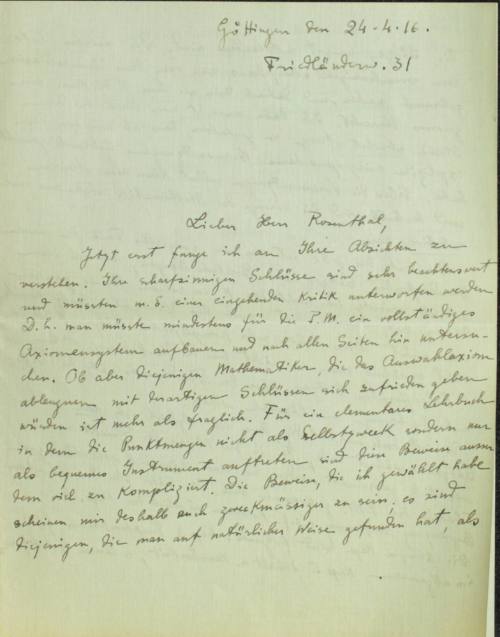 Göttingen den 24-4-16.
Friedländerw. 31
Lieber Herr Rosenthal,
Jetzt erst fange ich an Ihre Absichten zu
verstehen. Ihre scharfsinnigen Schlüsse sind sehr beachtenswert
und müssten m. E. einer eingehenden Kritik unterworfen werden
D. h. man müsste mindestens für die P. M. ein vollständiges
Axiomensystem aufbauen und nach allen Seiten hin untersu-
chen. Ob aber diejenigen Mathematiker, die das Auswahlaxiom
ableugnen mit derartigen Schlüssen sich zufrieden geben
würden ist mehr als fraglich. Für ein elementares Lehrbuch
in dem die Punktmengen nicht als Selbstzweck sondern nur
als bequemes Instrument auftreten sind diese Beweise ausser
dem viel zu kompliziert. Die Beweise, die ich gewählt habe
scheinen mir deshalb auch zweckmässiger zu sein; es sind
diejenigen, die man auf natürlicher Weise gefunden hat, als